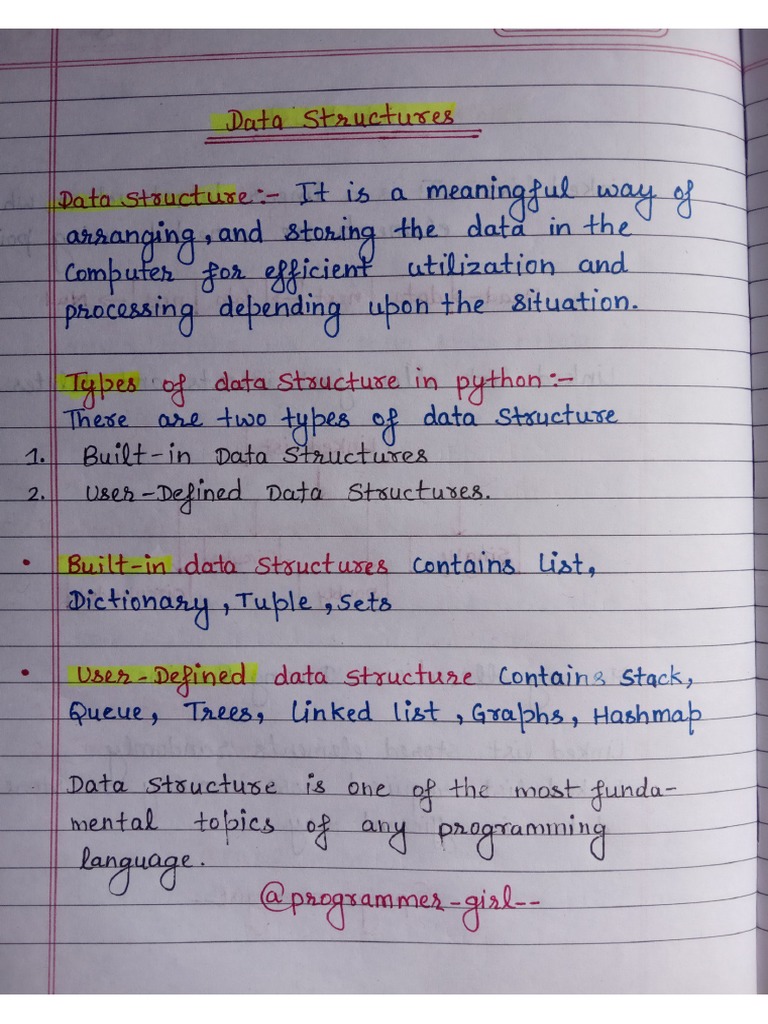 Data Structures
Data Structure :- It is a meaningful way of
arranging, and storing the data in the
Computer for efficient utilization and
processing depending upon the situation.
Types of data Structure in python :-
There are two types of data Structure
1. Built-in Data Structures
2. User-Defined Data Structures.
• Built-in data Structures Contains List,
Dictionary, Tuple, Sets
• User-Defined data Structure Contains Stack,
Queue, Trees, Linked list, Graphs, Hashmap
Data Structure is one of the most funda-
mental topics of any programming
language.
@programmer-girl--